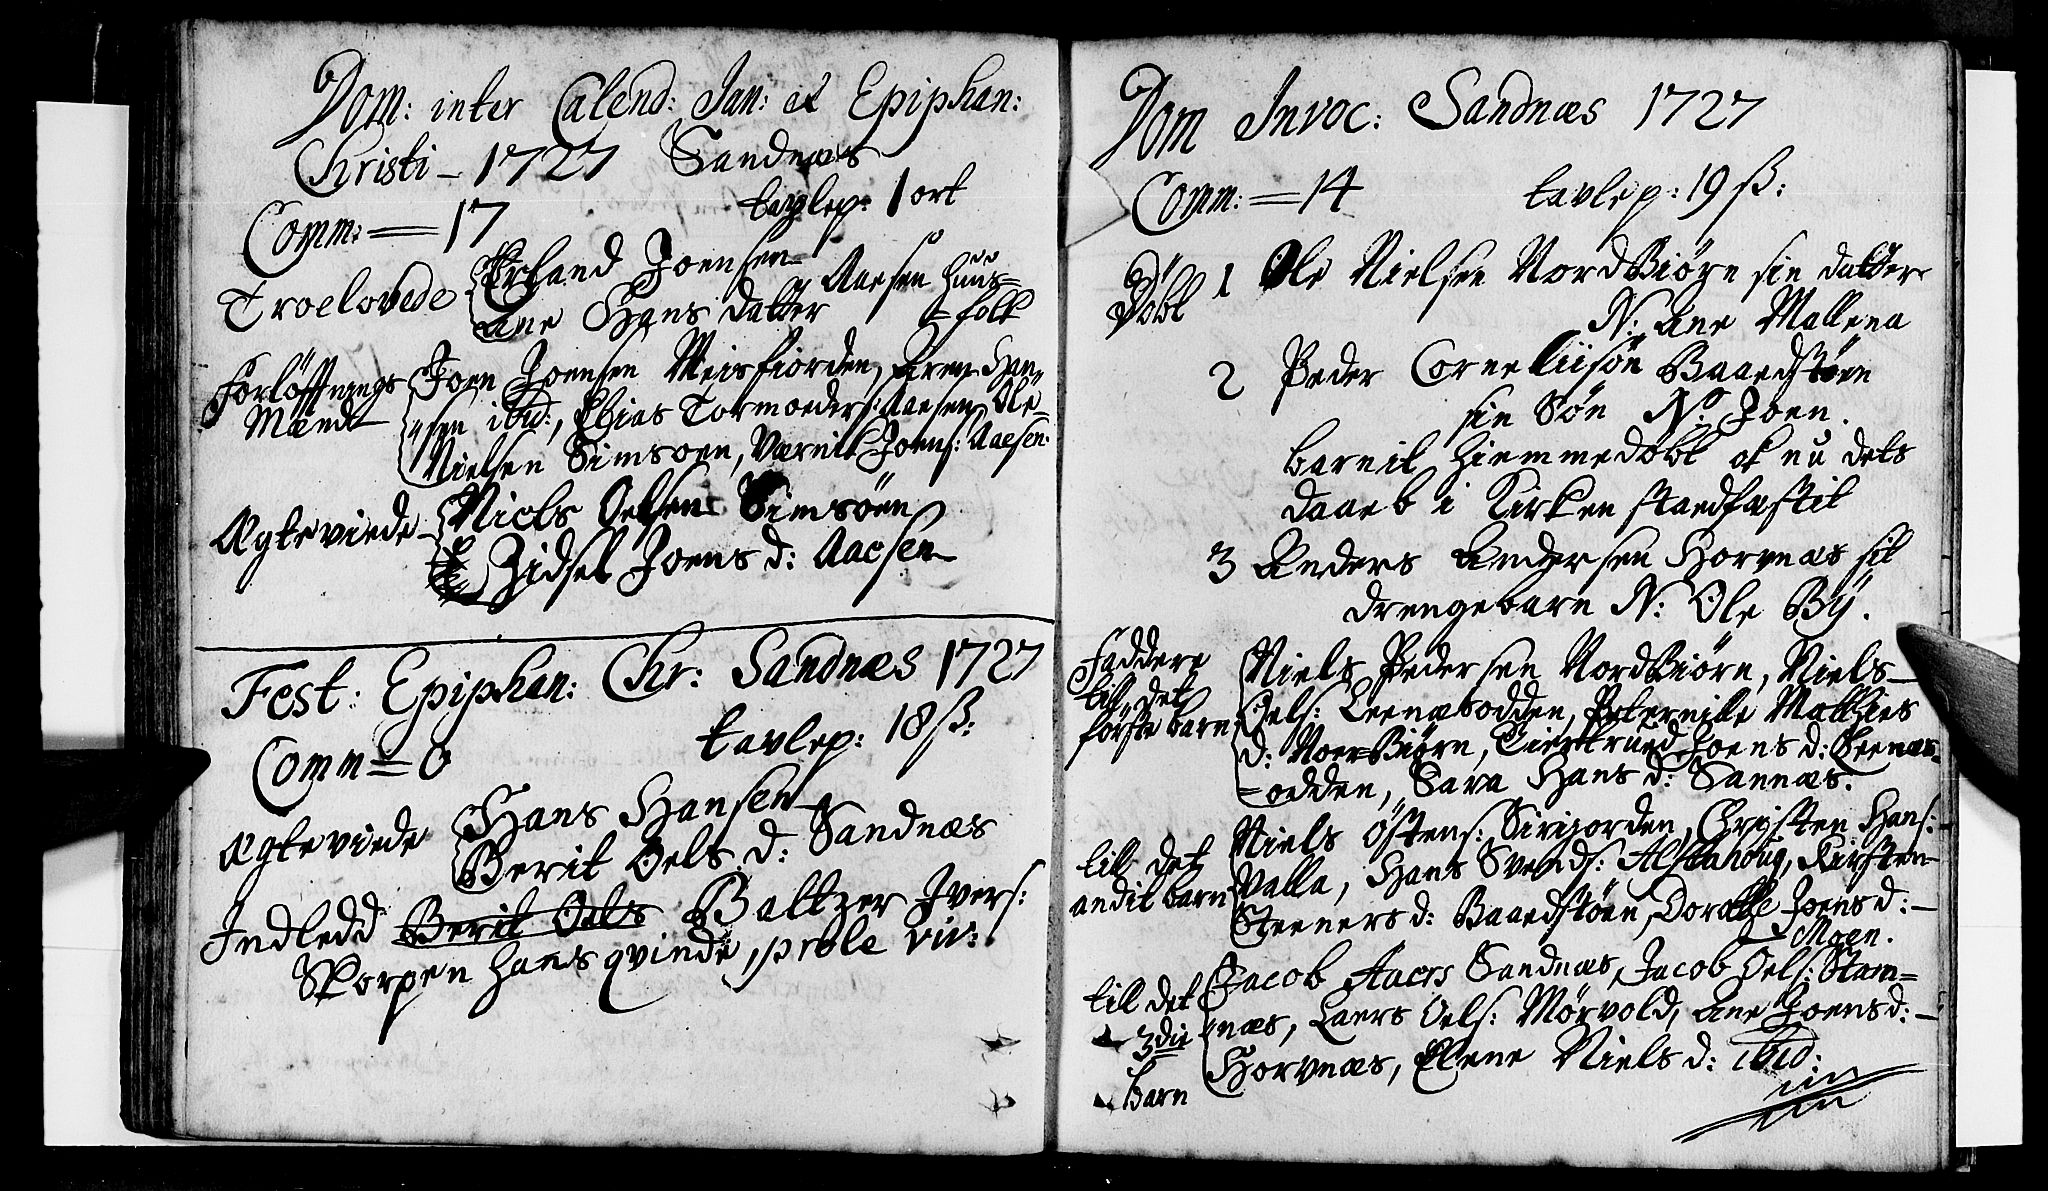 Dom: inter Calend: Jan: et Epiphan:
Christi - 1727 Sandnæs
Comm: = 17 tavlep: 1 ort
Troelovede Erland Joensen
Ane Hans datter Aaesen huus=
=folk
Forløftnings Mænd Joen Joensen Meisfiorden, Iver Han,,
,,sen ibid:, Elias Tormoeders: Aaesen, Ole
Nielsen Simsoen, Værnik Joens: Aaesen.
Ægteviede Niels Oelsen Simsøen
Zidsel Joens d: Aaesen
Fest: Epiphan: Chr: Sandnæs 1727
Comm = 0 tavlep: 18 ß:
Ægteviede Hans Hansen
Berit Oels d: Sandnæs
Indledd Berit Oels Baltzer Ivers:
Skorpen hans qvinde, prole viv:
Dom Invoc: Sandnæs 1727
Comm: = 14 tavlep: 19 ß:
Døbt 1 Ole Nielsen NordBiørn sin datter
N: Ane Mallena
2 Peder Corneliisøn Baadstøen
sin Søn No: Joen.
barnit hiemmedøbt ok nu dets
daaeb i Kirken stadfæstit
3 Anders Andersen Horvnæs sit
drengebarn N: Ole Bÿ.
Faddere till det første barn Niels Pedersen NordBiørn, Niels
Oels: Leenæsodden, Pelernille Mathies
d: NoerBiørn, Giertrued Joens d: Leenæs
=odden, Sara Hans d: Sannæs.
till det andit barn Niels Østens: Sirijorden, Christen Hans:
Valla, Hans Svends: Alstahoug, Kirsten
Steeners d: Baaedstøen, Dorothe Joens d:
Moen.
till det 3die barn Jacob Aaers Sandnæs, Jacob Oels: Stam=
,,næs, Laers Oels: Mørvold, Ane Joens d:
Horvnæs, Elene Niels d: ibid: